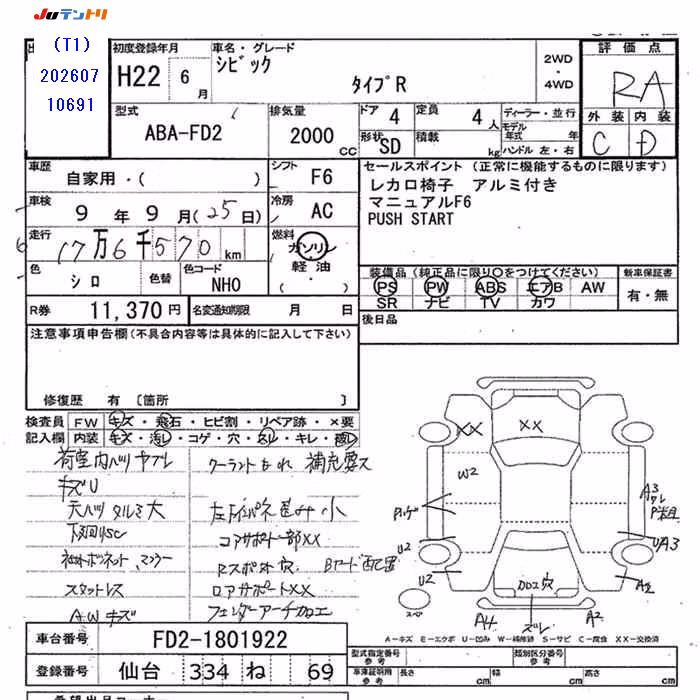 JUテントリ
(T1)
202607
10691
初度登録年月
H22 6月
車名・グレード
シビック
タイプR
2WD
・
4WD
評価点
RA
外装 内装
C D
型式
ABA-FD2
排気量
2000 CC
ドア 4
定員 4人
形状 SD
積載 kg
ディーラー・並行
モデル年式 年
ハンドル 左・右
車歴
自家用・( )
シフト F6
車検
9年9月(25日)
冷房 AC
走行
17万6千570km
燃料
ガソリン
・
軽油
( )
色 シロ
色替
色コード NH0
セールスポイント(正常に機能するものに限ります)
レカロ椅子 アルミ付き
マニュアルF6
PUSH START
装備品(純正品に限り○をつけてください)
PS PW ABS エアB AW
SR ナビ TV カワ
新車保証書
有・無
R券 11,370円
名変通知期限 月 日
後日品
注意事項申告欄(不具合内容等は具体的に記入して下さい)
修復歴 有 [箇所 ]
検査員
記入欄
FW キズ・飛石・ヒビ割・リペア跡・×要
内装 キズ・汚レ・コゲ・穴・スレ・キレ・
荷室内ハツ ヤブレ
キズU
天ハツ タルミ大
下回りSC
社外ボンネット、マフラー
スタットレス
A.W キズ
クーラントもれ 補充要ス
小
コアサポート一部XX
Rスポット穴
ロアサポートXX
フェンダーアーチ加工
XX
XX
W2
U2
U2
A3
UA3
A2
A4
A2
クロス穴
ズレ
スペア
A-キズ E-エクボ U-凹み W-補修跡 S-サビ C-腐食 XX-交換済
車台番号 FD2-1801922
登録番号 仙台 334 ね 69
型式指定番号
参考
類別区分番号
参考
車庫証明用
参考
長さ cm
幅 cm
高さ cm